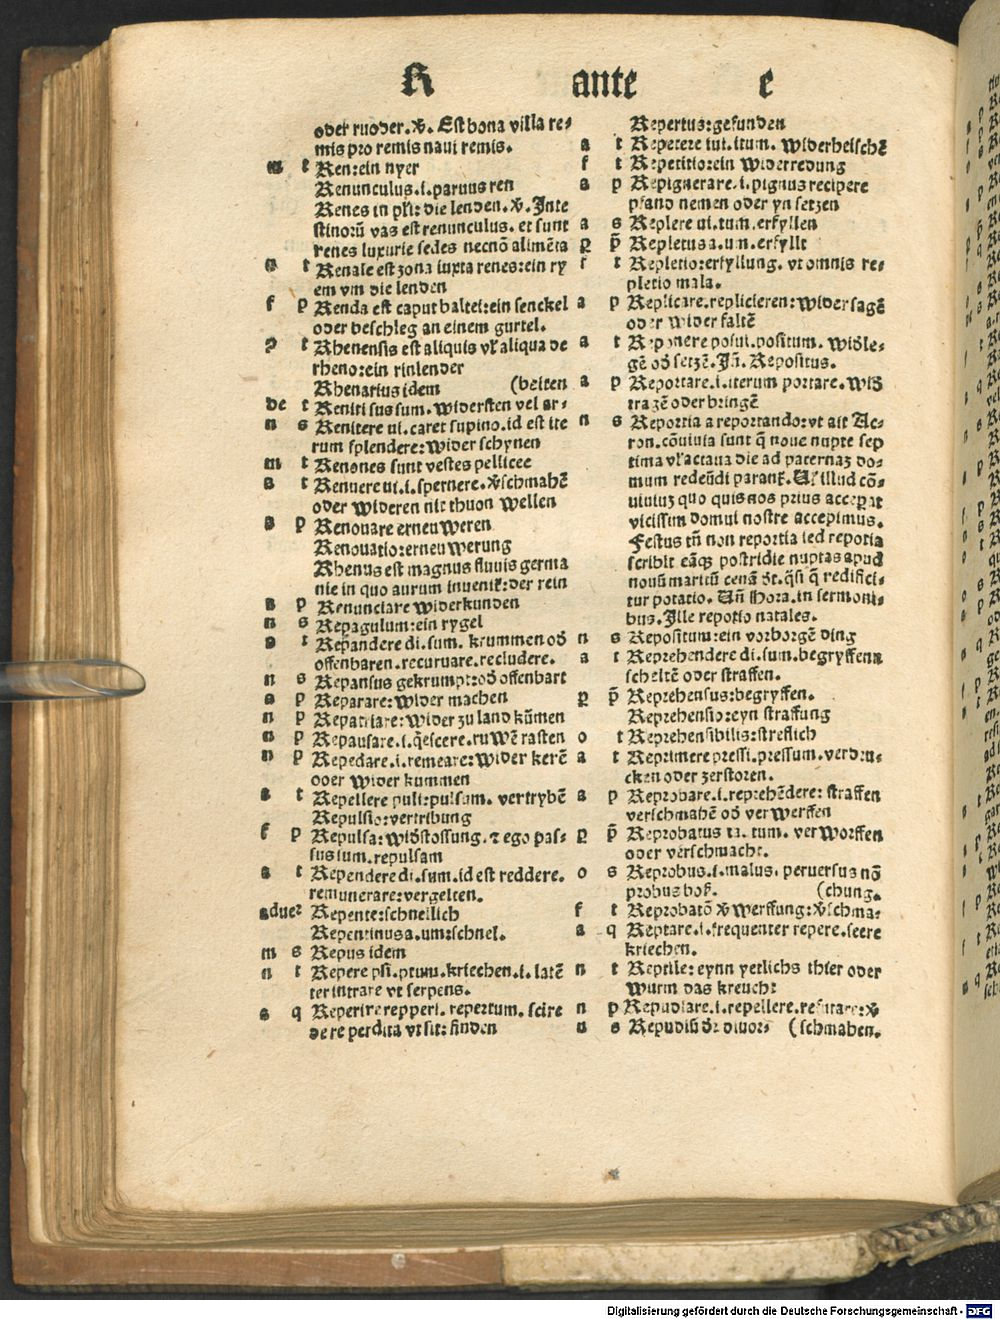 R ante e
oder ruoder. V̉. Est bona villa re⸗
mis pro remis naui remis.
m t Ren: ein nyer
Renunculus .i. paruus ren
Renes in pl̃i: die lenden. V̉. Inte
stinorũ vas est renunculus. et sunt
renes luxurie sedes necnõ alimẽta
n t Renale est zona iuxta renes: ein ry
em vm die lenden
f p Renda est caput baltei: ein senckel
oder beschleg an einem gurtel.
t Rhenensis est aliquis vl̃ aliqua de
rheno: ein rinlender
Rhenarius idem (beiten
de t Reniti sus sum. widersten vel ar⸗
n s Renitere ui. caret supino. id est ite
rum splendere: wider schynen
m t Renones sunt vestes pellicee
a t Renuere ui .i. spernere. v̉schmahẽ
oder wideren nit thuon wellen
a p Renouare erneuweren
Renouatio: erneuwerung
Rhenus est magnus fluuis germa
nie in quo aurum inuenit̃: der rein
a p Renunciare widerkunden
n s Repagulum: ein rygel
a t Repandere di. sum. krummen od̉
offenbaren. recuruare. recludere.
n s Repansus gekrumpt: od̉ offenbart
a p Reparare: wider machen
n p Repatriare: wider zu land kũmen
n p Repausare .i. q̃escere. ruwẽ rasten
n p Repedare .i. remeare: wider kerẽ
oder wider kummen
a t Repellere puli: pulsum. vertrybẽ
Repulsio: vertribung
f p Repulsa: wid̉stossung. ⁊ ego pas⸗
sus sum. repulsam
a t Rependere di. sum. id est reddere.
remunerare: vergelten.
aduer Repente: schnellich
Repentinus a. um: schnel.
m s Repus idem
n t Repere psi. ptum. kriechen .i. latẽ
ter intrare vt serpens.
a q Reperire repperi. repertum. scire
de re perdita vt sit: finden
Repertus: gefunden
a t Repetere iui. itum. widerheischẽ
f t Repetitio: ein widerredung
a p Repignerare .i. pignus recipere
pfand nemen oder yn setzen
a s Replere ui. tum. erfyllen
p̃ Repletus a. um. erfyllt
f t Repletio: erfyllung. vt omnis re⸗
pletio mala.
a p Replicare. replicieren: wider sagẽ
oder wider faltẽ
a t Reponere posui. positum. wid̉le⸗
gẽ od̉ setzẽ. Jñ. Repositus.
a p Reportare .i. iterum portare. wid̉
tragẽ oder bringẽ
n s Reportia a reportando: vt ait Ac⸗
ron. cõuiuia sunt q̃ noue nupte sep
tima vl̃ actaua die ad paternaȝ do⸗
mum redeũdi parant̃. Ul̃ illud cõ⸗
uiuiuȝ quo quis nos prius acceperat
vicissim domui nostre accepimus.
Festus tñ non reportia sed repotia
scribit eãqȝ postridie nuptas apud
nouũ maritũ cenã d̃t. q̃si q̃ redifici⸗
tur potatio. Uñ Hora. in sermoni⸗
bus. Ille repotio natales.
n s Repositum: ein vorborgẽ ding
a t Reprehendere di. sum. begryffenn
scheltẽ oder straffen.
p̃ Reprehensus: begryffen.
Reprehensio: eyn straffung
o t Reprehensibilis: streflich
a t Reprimere pressi. pressum. verdru⸗
cken oder zerstoren.
a p Reprobare .i. reprehẽdere: straffen
verschmahẽ od̉ verwerffen
p̃ Reprobatus ta. tum. verworffen
oder verschmacht.
o s Reprobus .i. malus. peruersus nõ
probus boß. (chung.
f t Reprobatõ v̉werffung: v̉schma⸗
a q Reptare .i. frequenter repere. seere
kriechen.
n t Reptile: eynn yetlichs thier oder
wurm das kreucht
n p Repudiare .i. repellere. refutare: v̉
n s Repudiũ d̃r diuor⸗ (schmahen.
Digitalisierung gefördert durch die Deutsche Forschungsgemeinschaft - DFG